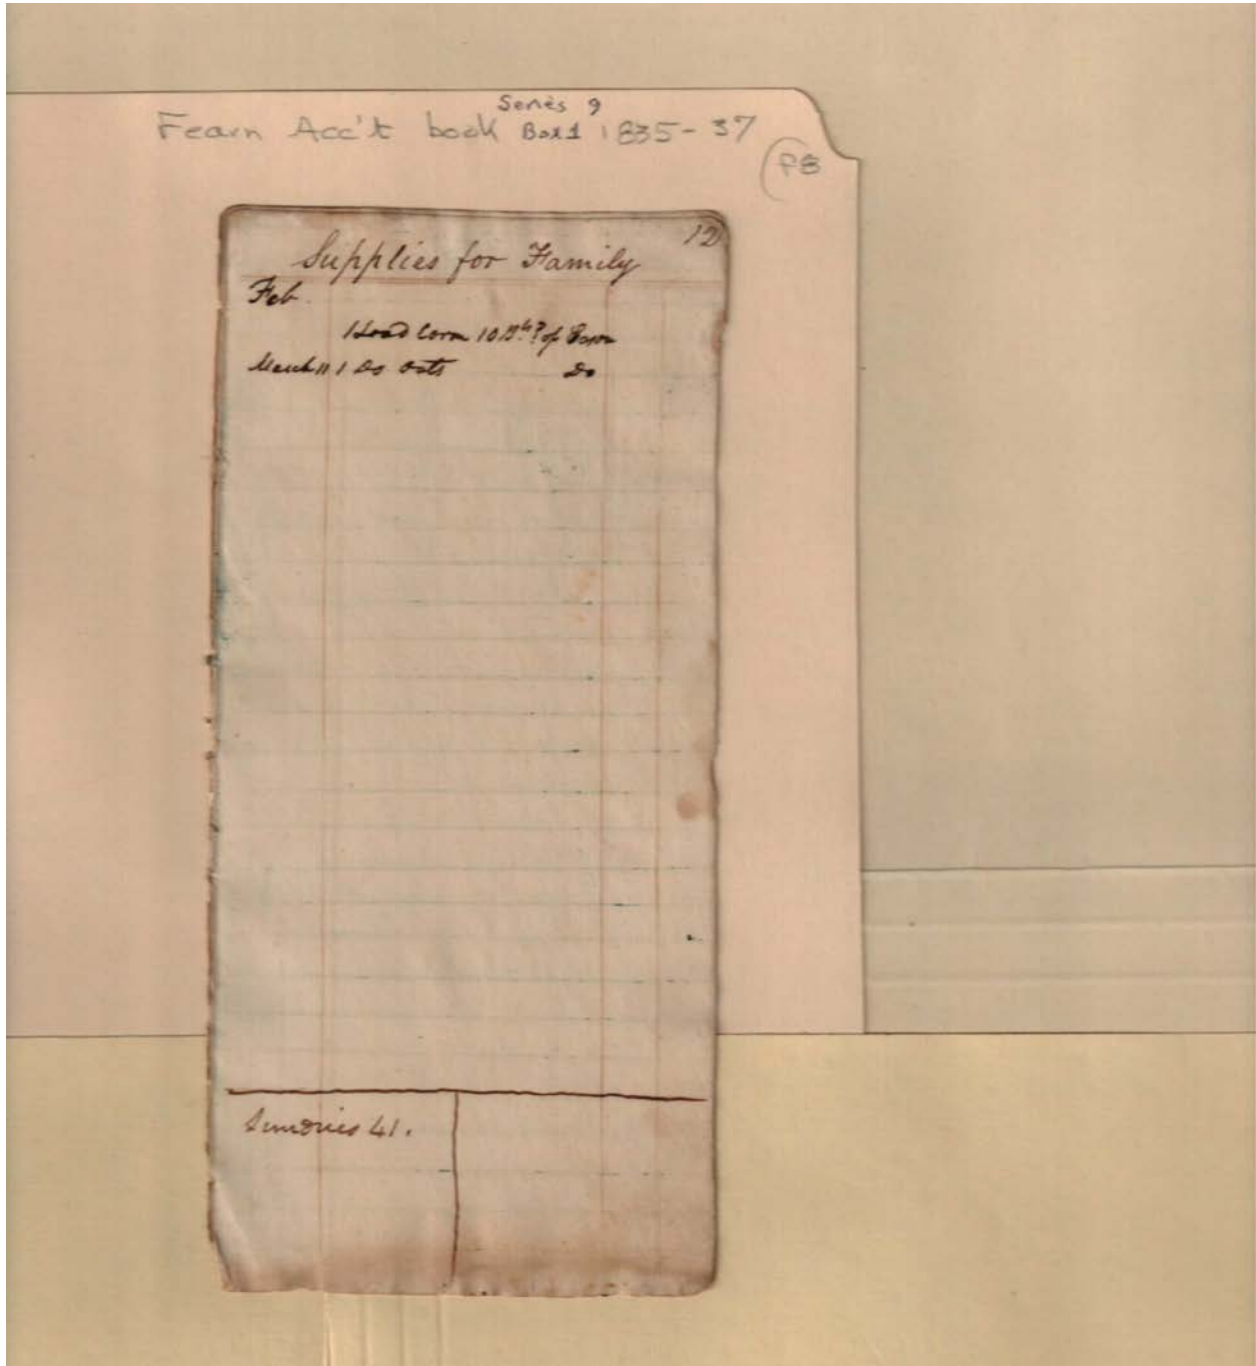 Series 9
Fearn Acc't book Box 1 1835-37
P8
12
Supplies for Family
Feb.
1 Load Corn 10 of
March 11 1 Do Oats Do
Sundries 41.